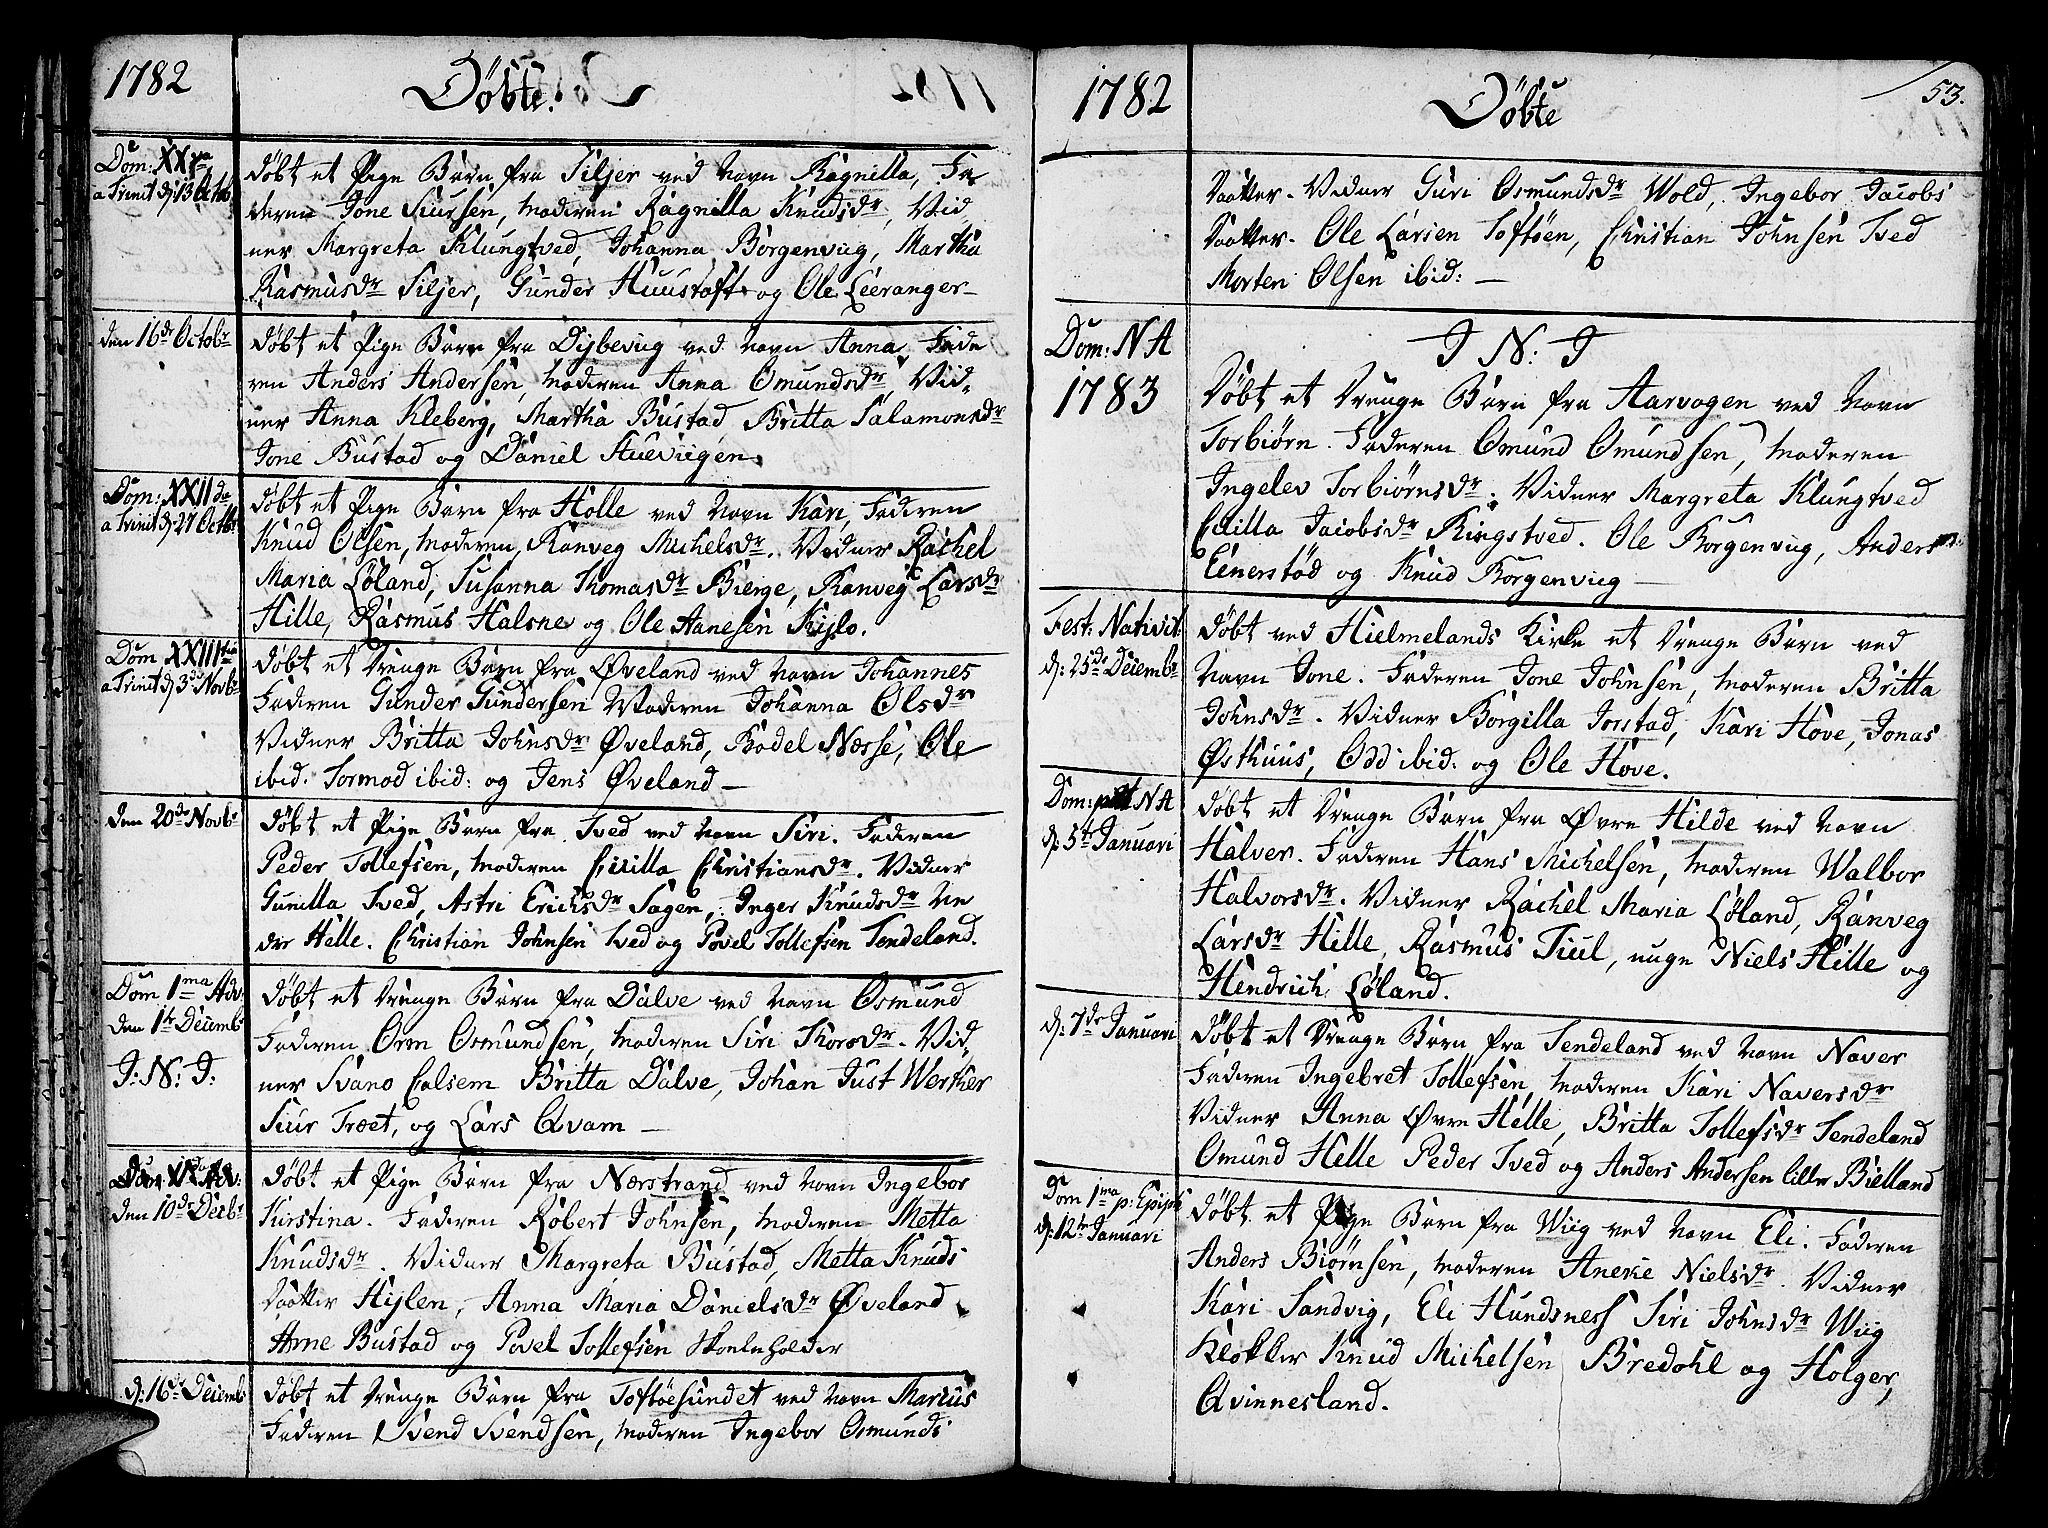 1782
Döbte.
Dom: XXma
a Trinit d: 13 Octb
döbt et Pige Barn fra Siljer ved Navn Ragnilla, Fa
deren Jone Siursen, moderen Ragnilla Knudsdr, Vid
ner Margreta Klungtved, Johanna Borgenviig, Martha
Rasmusdr Siljer, Gunder Huustoft og Ole Leeranger-
den 16de Octobr
döbt et Pige Barn fra Dybeviig ved Navn Anna, Fade
ren Anders Andersen, moderen Anna Omundsdr Vid-
ner Anna Kleberg, Martha Bustad Britta Salamonsdr
Jone Bustad og Daniel
Dom: XXIIda
a Trinit d: 27 Octbr
döbt et Pige Barn fra Holle ved Navn Kari, Faderen
Knud Olsen, moderen Ranveg Michelsdr. Vidner Rachel
Maria Löland, Susanna Thomasdr Bierge, Ranveg Larsdr
Hille, Rasmus Halsne og Ole Aanesen Kijlo.
Dom XXIIItia
a Trinit d: 3de Novbr
döbt et Drenge Barn fra Øveland ved Navn Johannes
Faderen Gunder Gundersen Moderen Johanna Olsdr
Vidner Britta Johnsdr Øveland, Bodel Næsse, Ole
ibid. Tormod ibid: og Jens Øveland —
den 20de Novbr
döbt et Pige Barn fra Tved ved Navn Siri. Faderen
Peder Tollefsen, moderen Cicilla Christiansdr. Vidner
Gunilla Tved, Astri Erichsdr Sagen, Inger Knudsdr Ne
dre Helle. Christian Johnsen Tved og Povel Tollefsen Tendeland.
Dom 1ma Adv:
den 1te Decemb
J: N: J:
döbt et Drenge Barn fra Dalve ved Navn Osmund
Faderen Orm Osmundsen, moderen Siri Thorsdr. Vid,
ner Svano Calsem Britta Dalve, Johan Just Werther
Siur Træet, og Lars Qvam —
den 10de Decbr
döbt et Pige Barn fra Nærstrand ved Navn Ingebor
Kirstina. Faderen Robert Johnsen, moderen Metta
Knudsdr. Vidner Margreta Bustad, Metta Knuds
Daatter Hijlen, Anna Maria Danielsdr Øveland
Arne Bustad og Povel Tollefsen Skoleholder
d: 16de Decemb
döbt et Drenge Barn fra Toftöesundet ved Navn Marcus
Faderen Svend Svendsen, moderen Ingebor Osmunds
1782
Döbte
53.
Daatter. Vidner Guri Osmundsdr Wold, Ingebor Jacobs
Daatter. Ole Larsen Toftöen, Christian Johnsen Tved
Morten Olsen ibid: —
Dom: NA
1783
J N: J
Döbt et Drenge Barn fra Aarvogen ved Navn
Torbiörn. Faderen Omund Omundsen, moderen
Ingelev Torbiörnsdr. Vidner Margreta Klungtved
Cicilla Jacobsdr Ringstved. Ole Borgenviig, Anders
Einerstöd og Knud Borgenviig —
Fest: Nativit
d: 25de Decembr
döbt ved Hielmelands Kirke et Drenge Barn ved
Navn Jone. Faderen Jone Johnsen, moderen Britta
Johnsdr. Vidner Borgilla Jorstad, Kari Hove, Jonas
Østhuus, Odd ibid: og Ole Hove.
Dom: post NA
d: 5te Januari
döbt et Drenge Barn fra Øvre Hilde ved Navn
Halver. Faderen Hans Michelsen, moderen Walbor
Halvorsdr. Vidner Rachel Maria Löland, Ranveg
Larsdr Hille, Rasmus Tiul, unge Niels Hille og
Hendrich Löland.
d: 7de Januari
döbt et Drenge Barn fra Tendeland ved Navn Naver
Faderen Ingebret Tollefsen, moderen Kari Naversdr
Vidner Anna Øvre Helle, Britta Tollefsdr Tendeland
Omund Helle Peder Tved og Anders Andersen lille Bielland
Dom 1ma p: Epiph
d: 12te Januari
döbt et Pige Barn fra Wiig ved Navn Eli. Faderen
Anders Biörnsen, moderen Aneke Nielsdr. Vidner
Kari Sandvig, Eli Hundsness Siri Johnsdr Wiig
Klokker Knud Michelsen Bredahl og Holger
Qvinnesland.